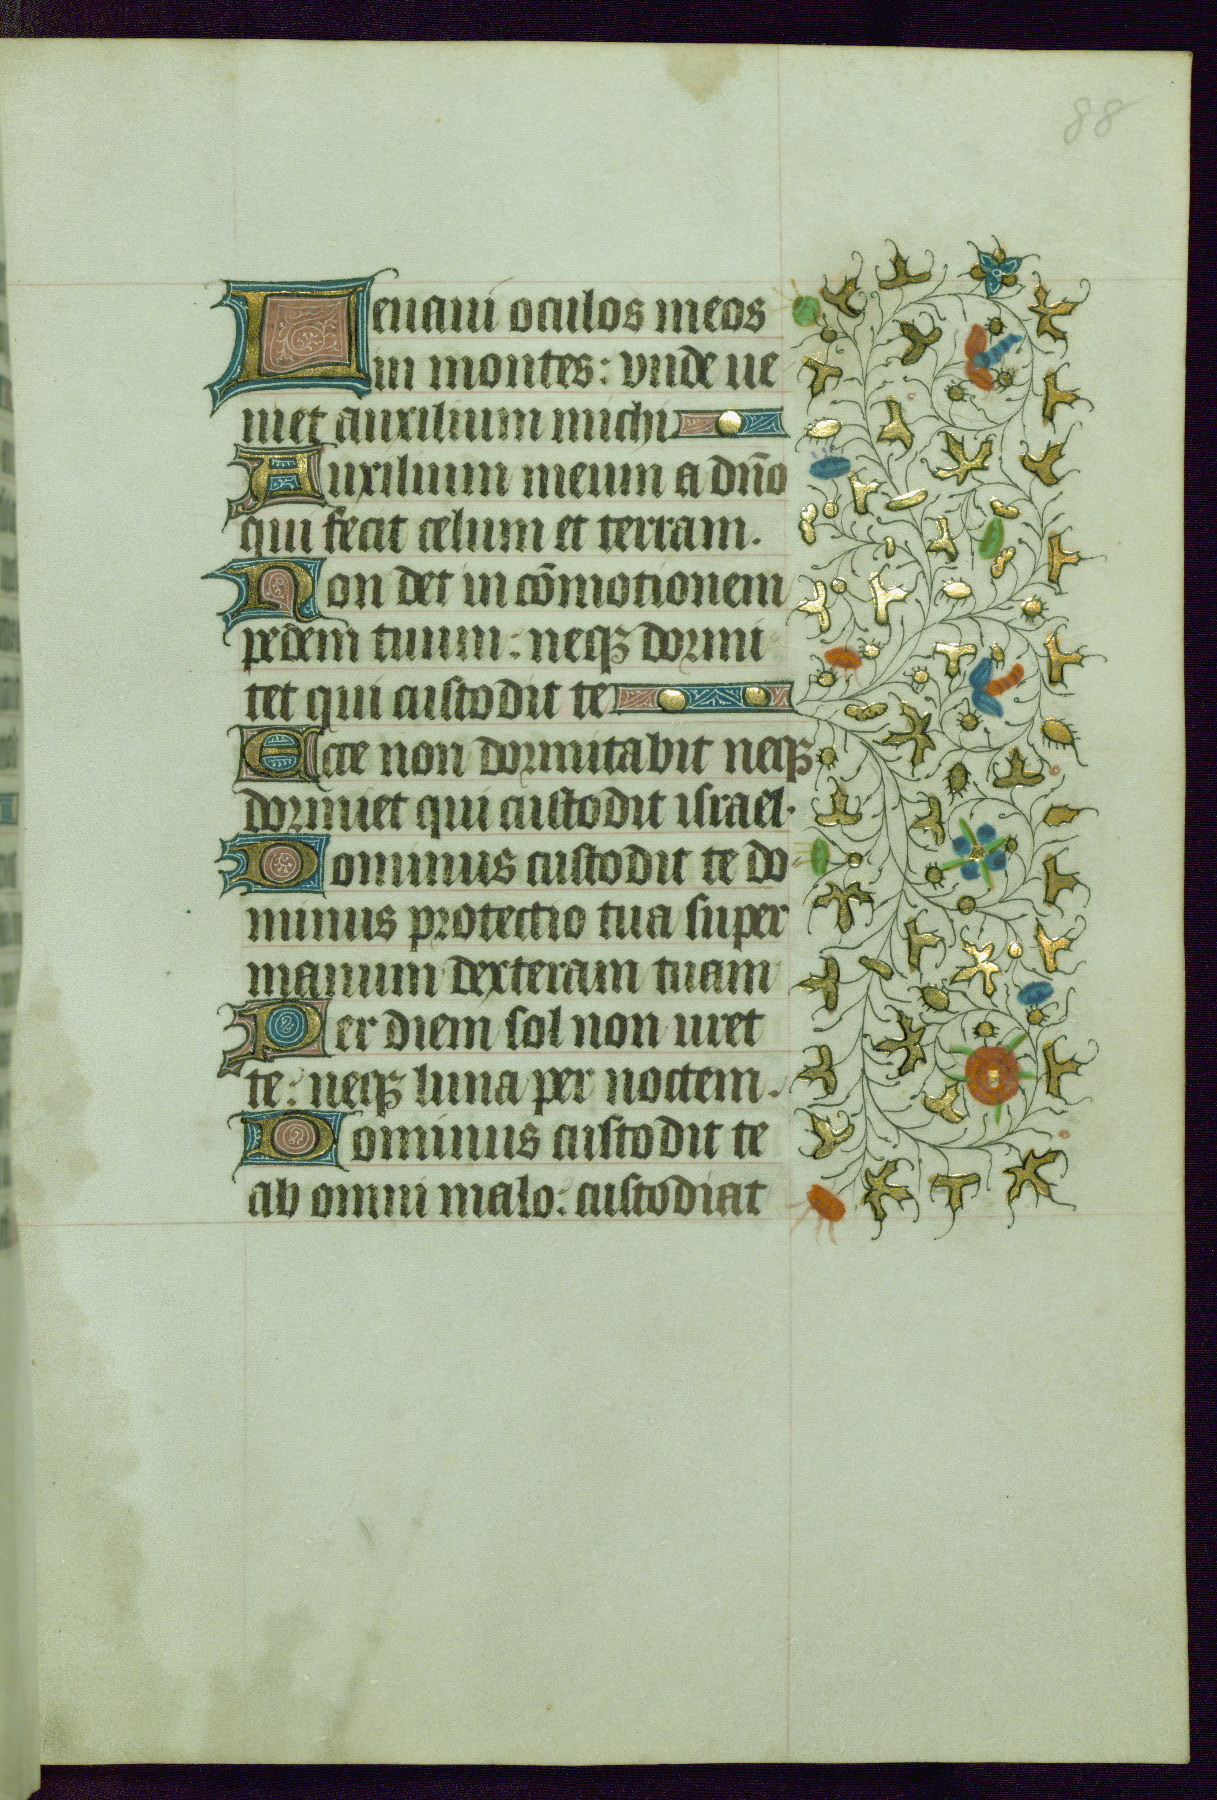 88
Leuaui oculos meos
in montes: vnde ue
niet auxilium michi
Auxilium meum a dño
qui fecit celum et terram.
Non det in cōmotionem
pedem tuum: neqꝫ dormi
tet qui custodit te
Ecce non dormitabit neqꝫ
dormiet qui custodit israel.
Dominus custodit te do
minus protectio tua super
manum dexteram tuam
Per diem sol non uret
te: neqꝫ luna per noctem.
Dominus custodit te
ab omni malo: custodiat